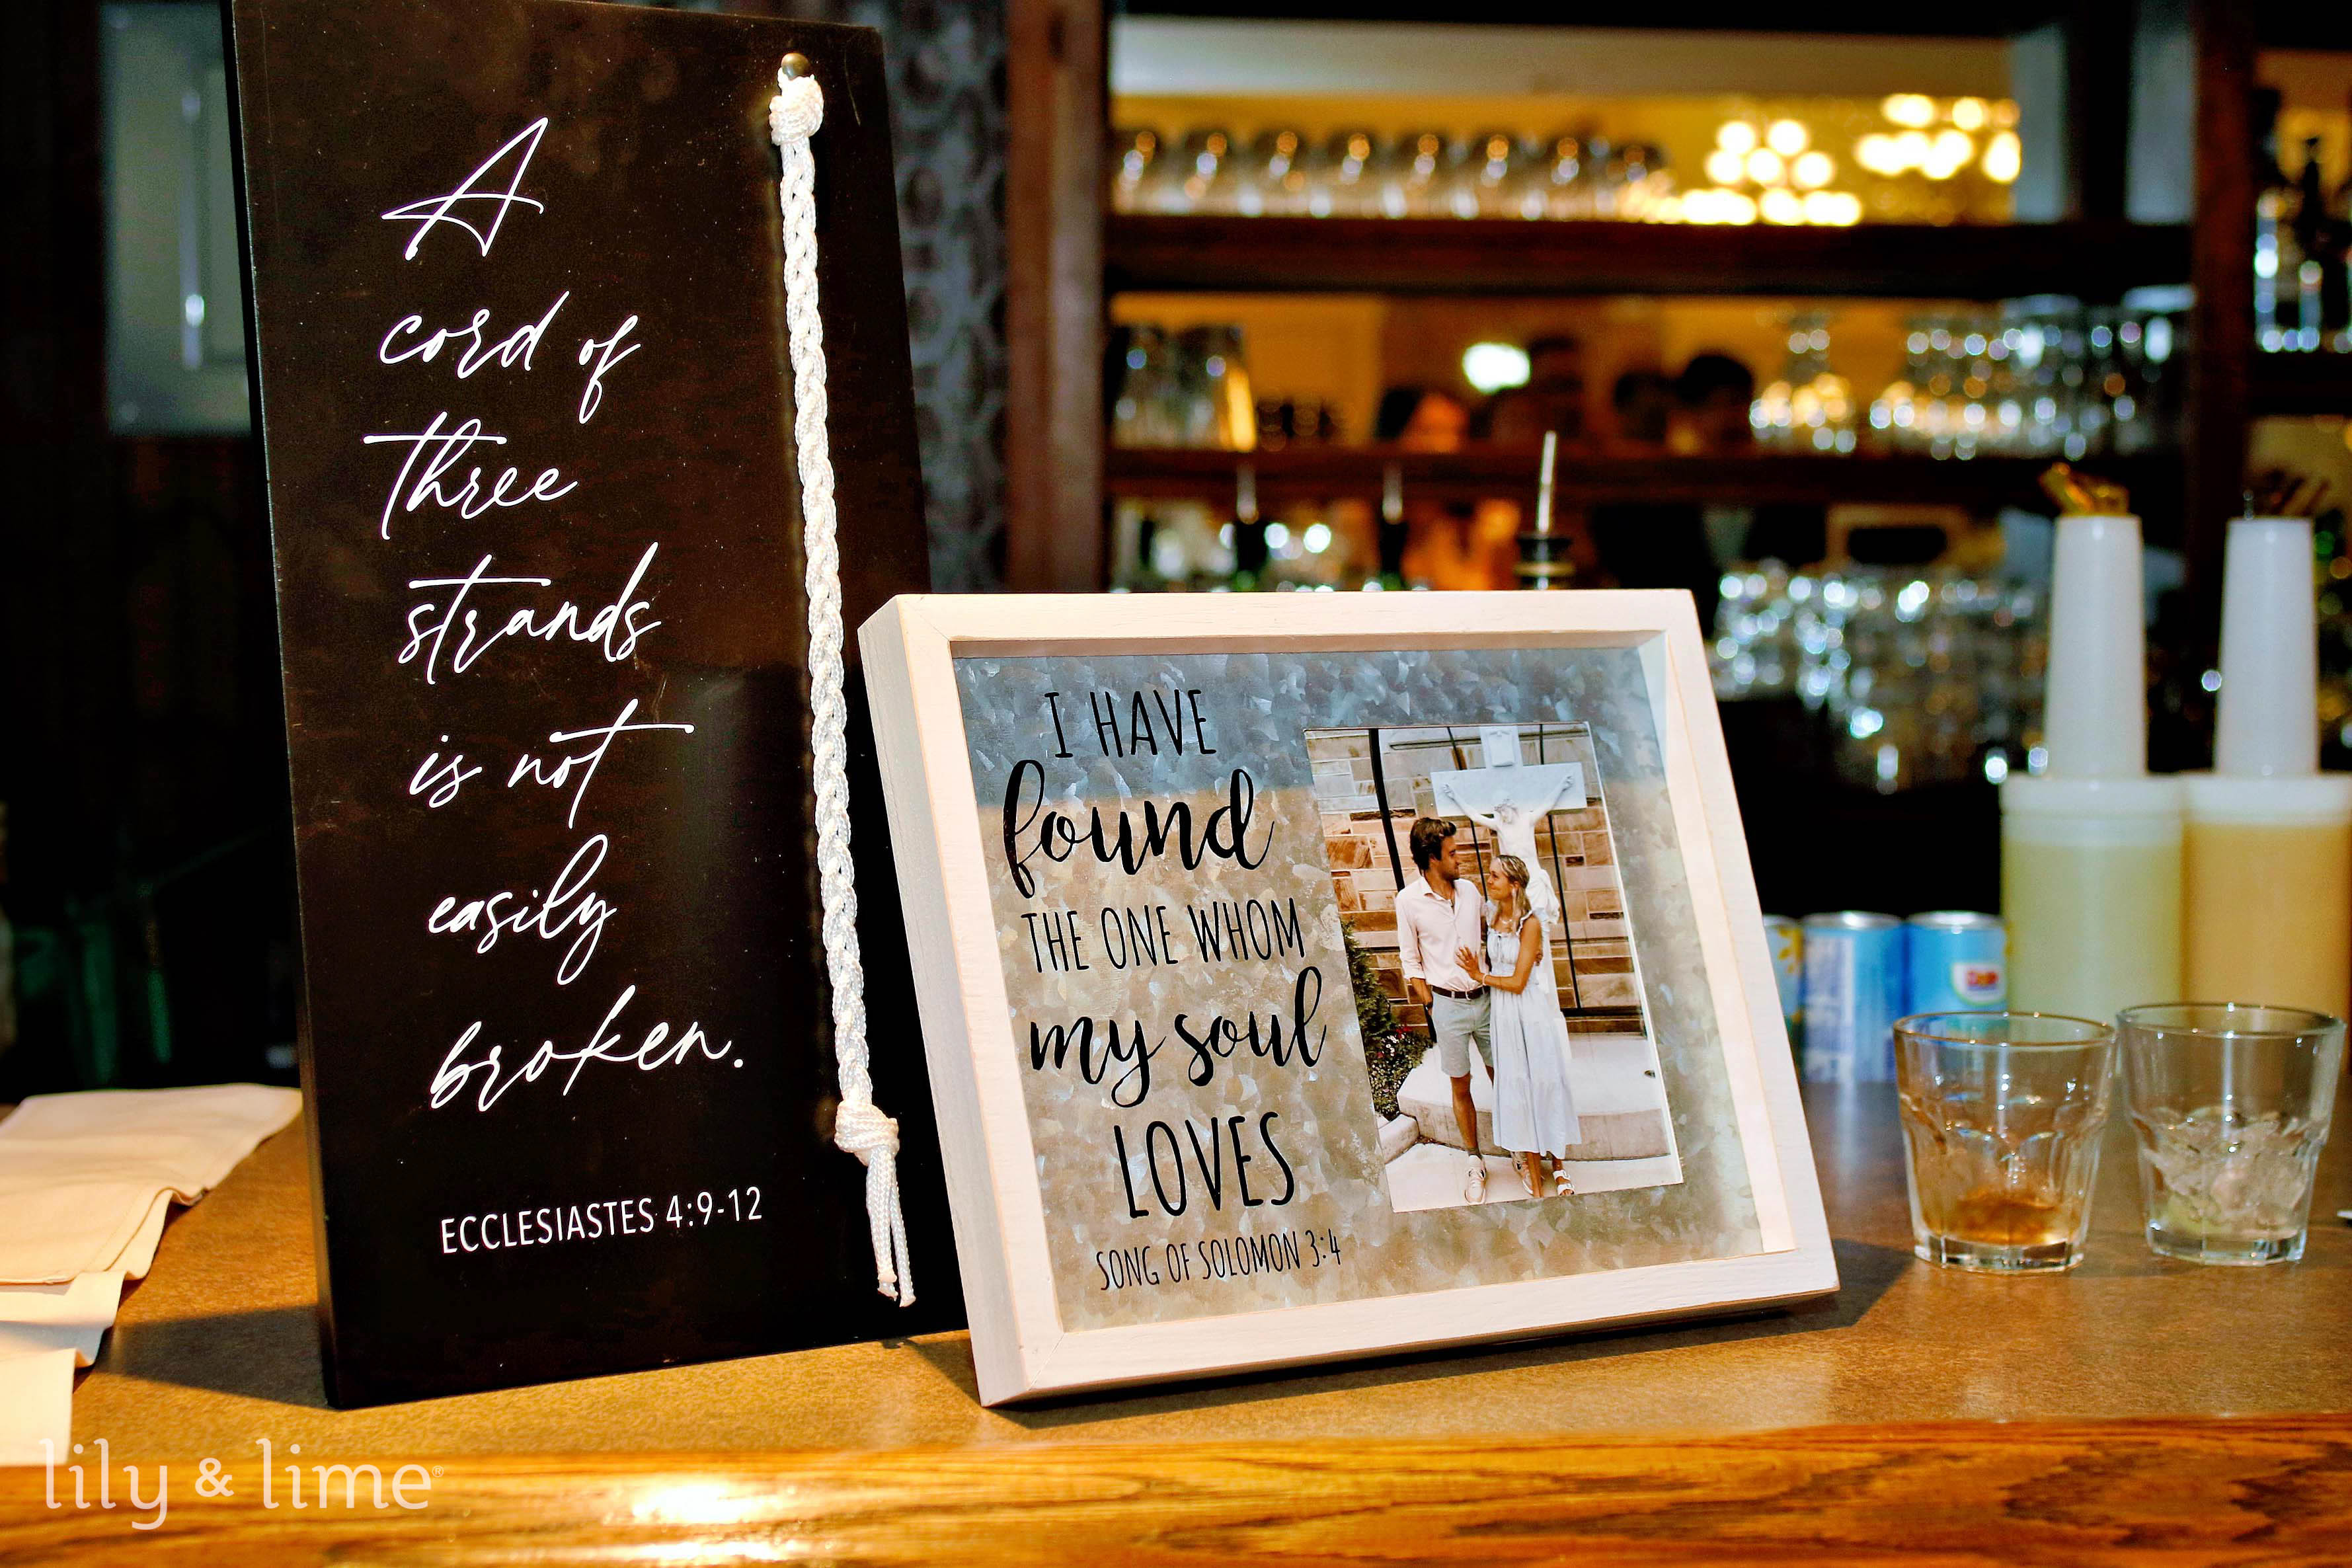 A
cord of
three
strands
is not
easily
broken.
ECCLESIASTES 4:9-12
I HAVE
found
THE ONE WHOM
my soul
LOVES
SONG OF SOLOMON 3:4
Dole
lily & lime®